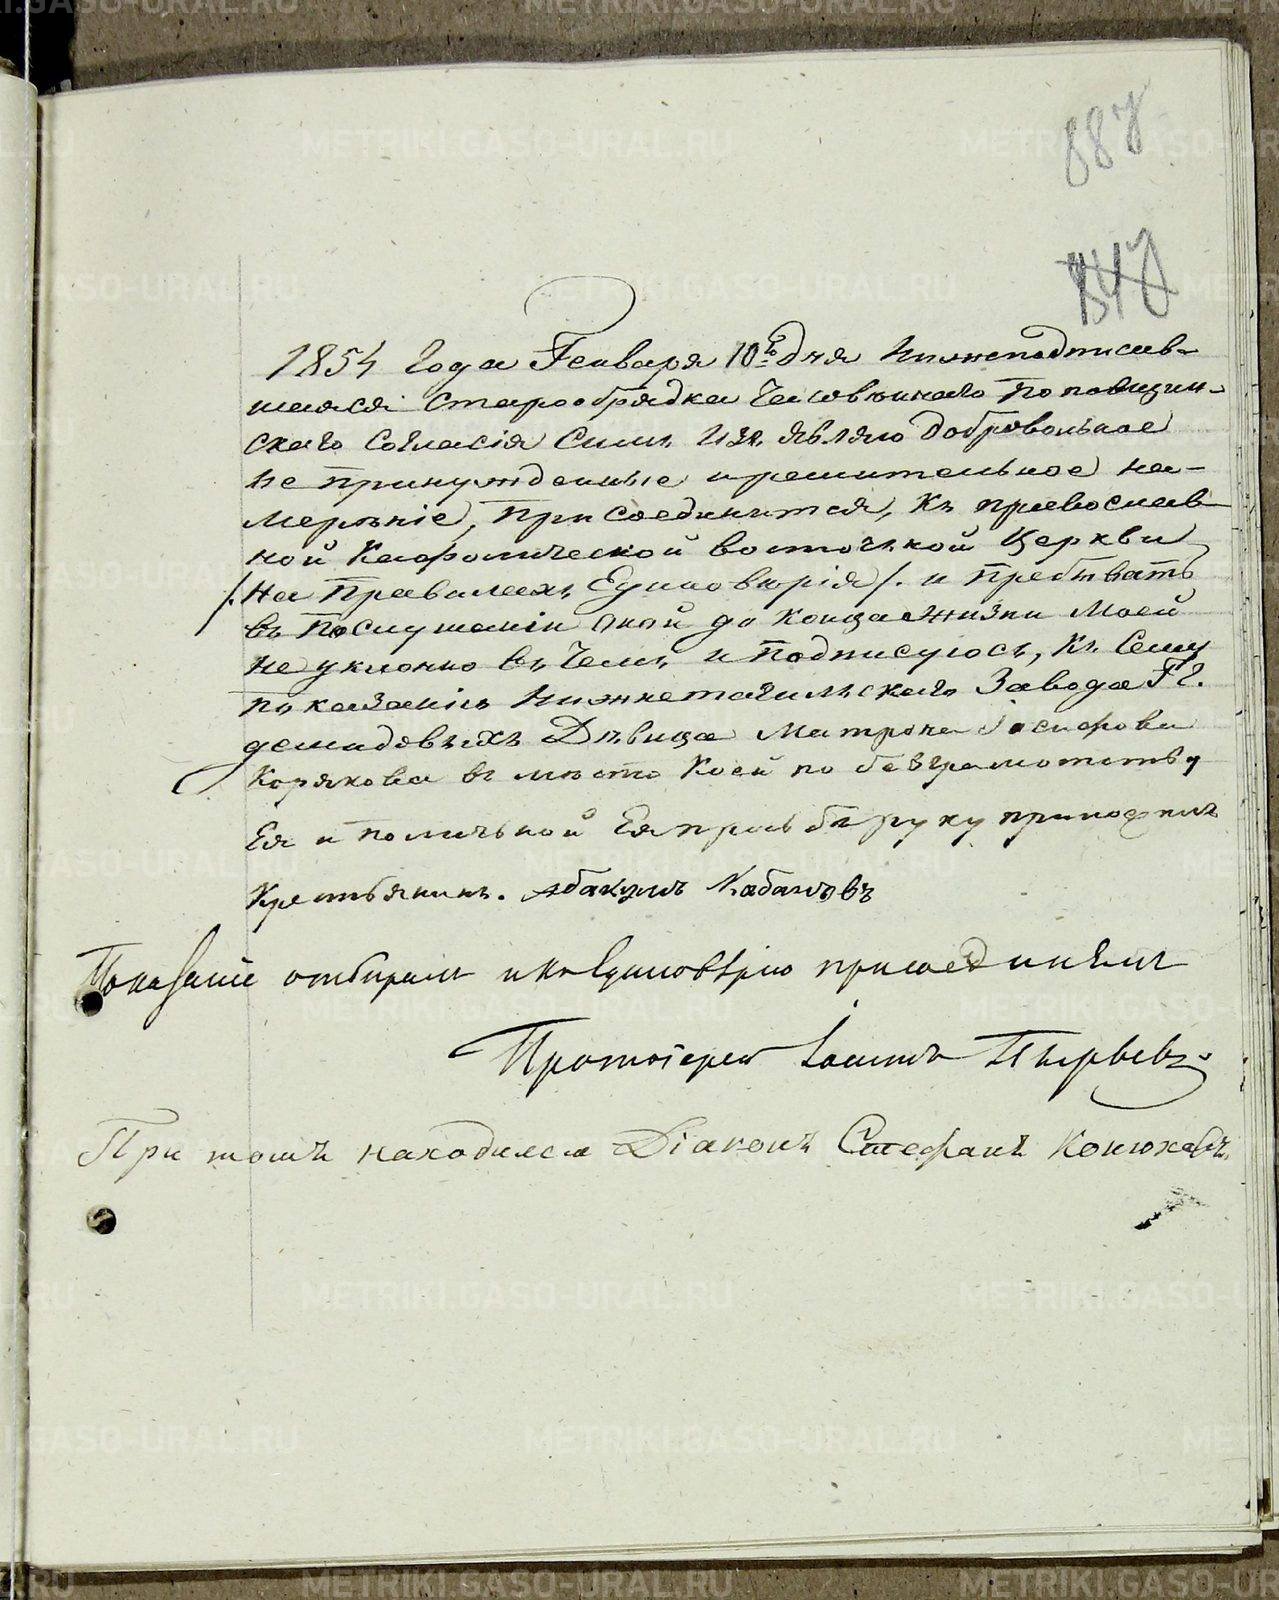 887
1854 Года Генваря 10го дня нижеподписав-
шаяся старообрядка Часовеннаго поповщин-
скаго согласія симъ изъявляю добровольное
не принужденные и решительное на-
мереніе, присоединится, къ православ-
ной Кафолической восточной Церкви
/. На Правилахъ Единоверія /. и пребывать
въ послушаніи оной до конца жизни моей
не уклонно въ чемъ и подписуюсь, къ сему
показанію Нижнетагильскаго Завода ГГ.
демидовыхъ Девица Матрона Іосифова
Корякова в место коей по безграмотству
Ея и по личьной Ея прозьбе руку приложилъ
Крестьянинъ. Абакумъ Кабановъ
Показаніе отбиралъ и къ Единоверію присоединилъ
Протоіерей Іоаннъ Пырьевъ.
При томъ находился Діаконъ Стефанъ Конюховъ.
METRIKI.GASO-URAL.RU